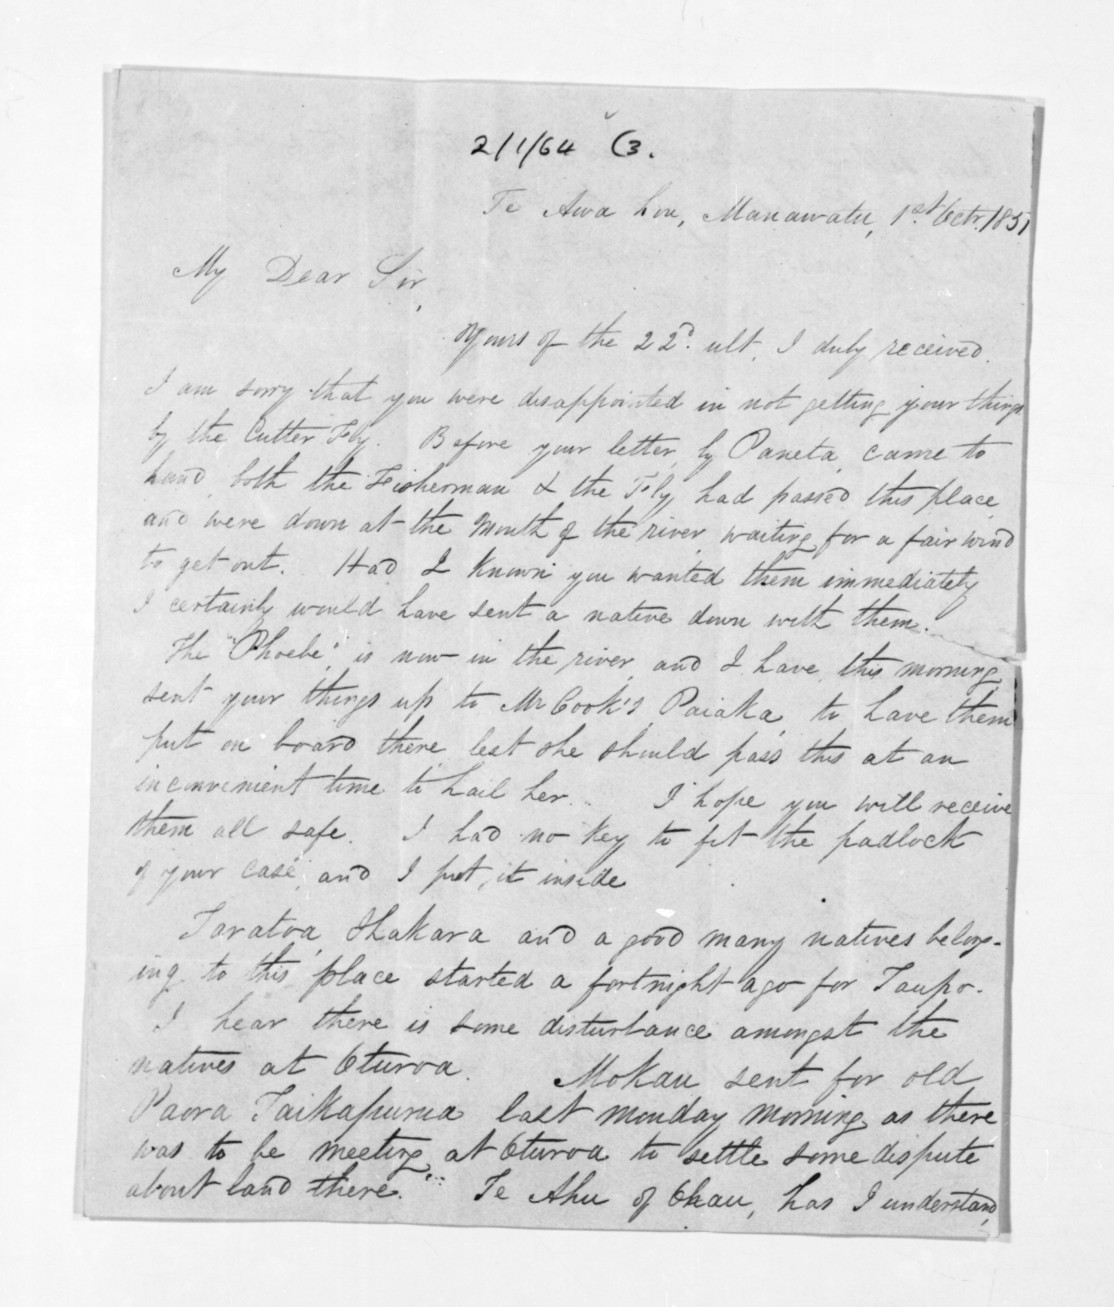 2/1/64 C3.
Te Awa hou, Manawatu, 1st. Octr. 1851
My Dear Sir,
Yours of the 22d. ult. I duly received.
I am sorry that you were disappointed in not getting your things
by the Cutter Fly. Before your letter, by Paneta, came to
hand, both the Fisherman & the Fly had passed this place,
and were down at the Mouth of the river, waiting for a fair wind
to get out. Had I known you wanted them immediately
I certainly would have sent a native down with them.
The "Phoebe", is now in the river, and I have this morning
sent your things up to Mr Cook's, Paiaka, to have them
put on board there lest she should pass this at an
inconvenient time to hail her. I hope you will receive
them all safe. I had no key to fit the padlock
of your case, and I put it inside
Taratoa, Ihakara and a good many natives belong-
ing to this place started a fortnight ago for Taupo.
I hear there is some disturbance amongst the
natives at Oturoa. Mokau sent for old
Paora Taikapurua last Monday Morning as there
was to be meeting at Oturoa to settle some dispute
about land there. Te Ahu of Ohau, has I understand,